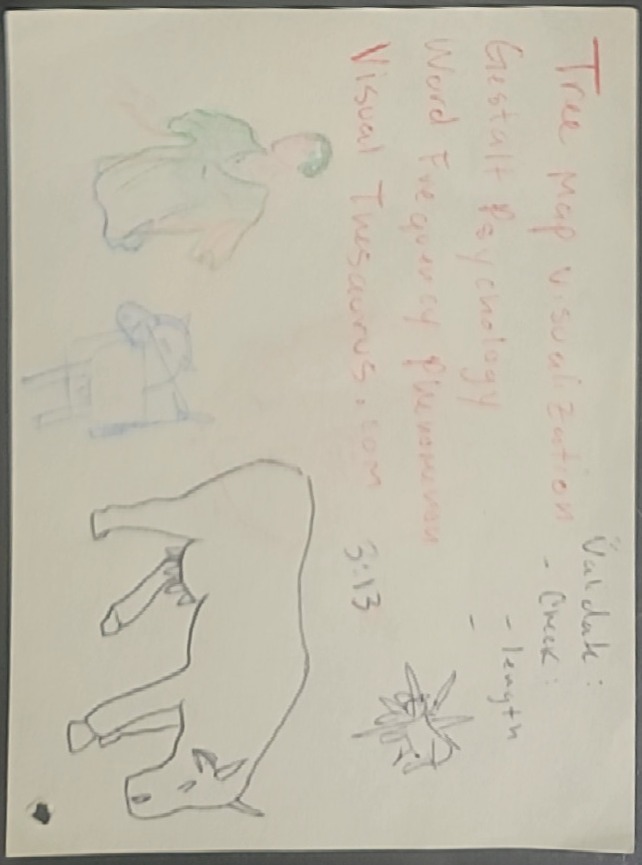 Tree Map visualization
Gestalt Psychology
Word Frequency Phenomenon
Visual Thesaurus.com
3:13
Validate:
- Check:
- length
-